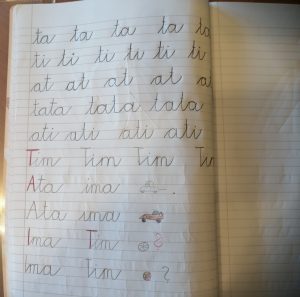 ta ta ta ta ta
ti ti ti ti ti ti
at at at at a
tata tata tata
ati ati ati ati
Tim Tim Tim Ti
Ata ima
Ata ima
Ima Tim ?
Ima Tim ?